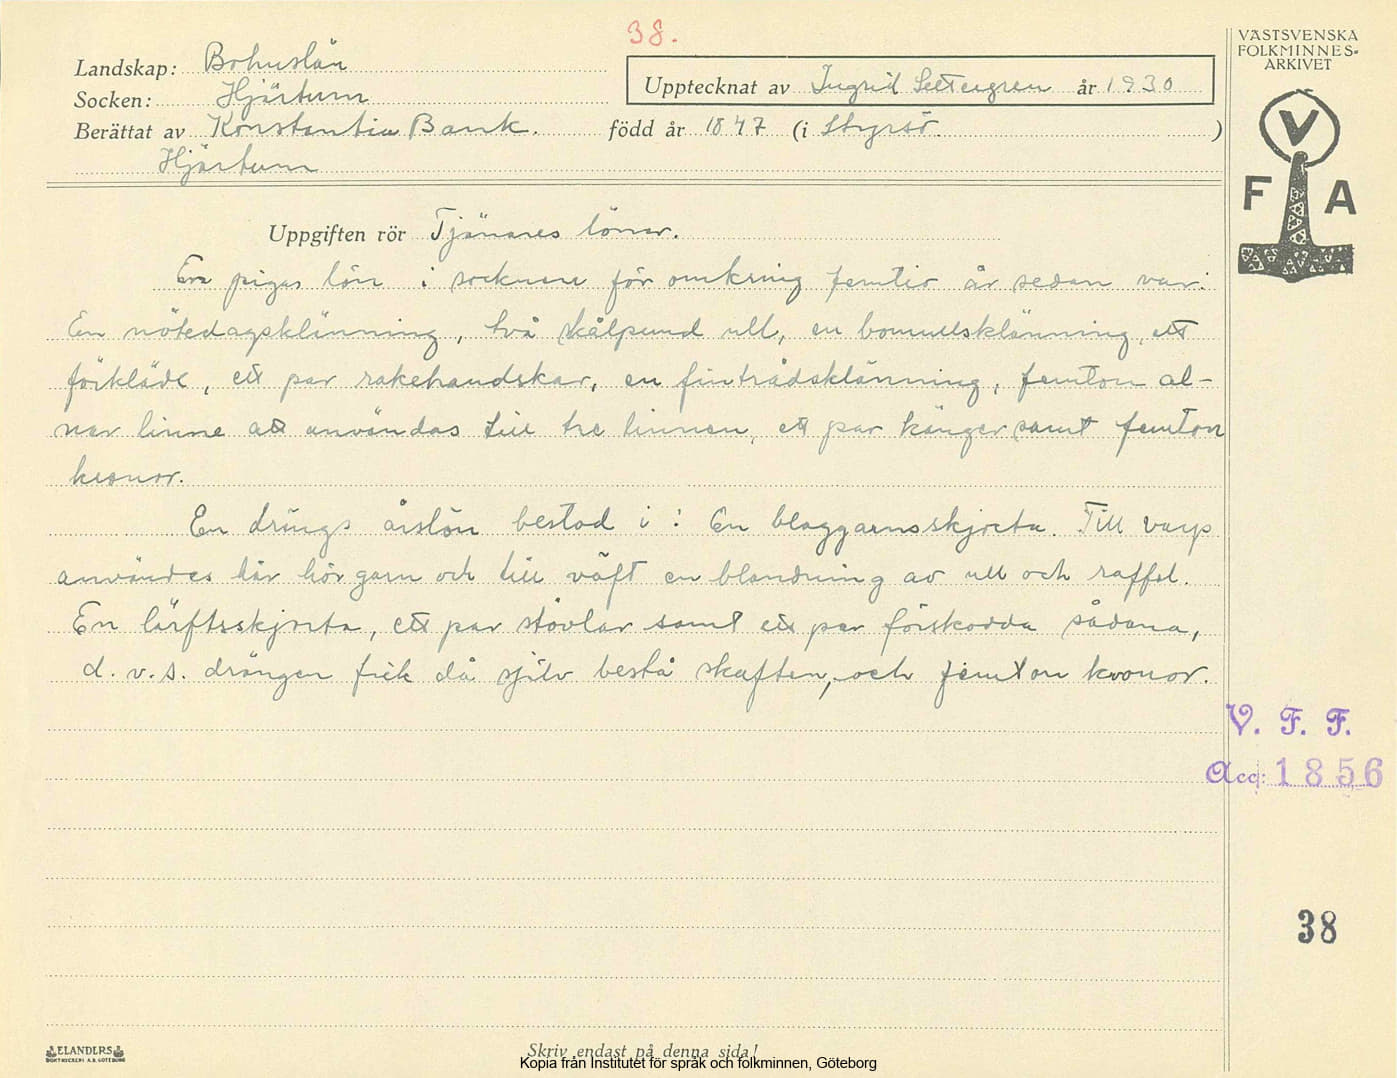 38.
VÄSTSVENSKA
FOLKMINNES-
ARKIVET
Landskap: Bohuslän
Upptecknat av Ingrid år 1930
Socken: Hjärtum
Berättat av Konstantia Bank. född år 1847 (i Styrsö. )
Hjärtum
V
F A
Uppgiften rör Tjänares löner.
En pigas lön i socknen för omkring femtio år sedan var:
En nötedagsklänning, två skålpund ull, en bomullsklänning, ett
förkläde, ett par rakehandskar, en fintrådsklänning, femton al-
nar linne att användas till tre linnen, ett par kängor samt femton
kronor.
En drängs årslön bestod i: En blaggarnsskjorta. Till varp
användes här hörgarn och till väft en blandning av ull och raffel.
En lärftsskjorta, ett par stövlar samt ett par förskodda sådana,
d.v.s. drängen fick då själv bestå skaften, och femton kronor.
V. F. F.
Acc: 1856
38
ELANDERS
BOKTRYCKERI A.B. GÖTEBORG
Skriv endast på denna sida!
Kopia från Institutet för språk och folkminnen, Göteborg